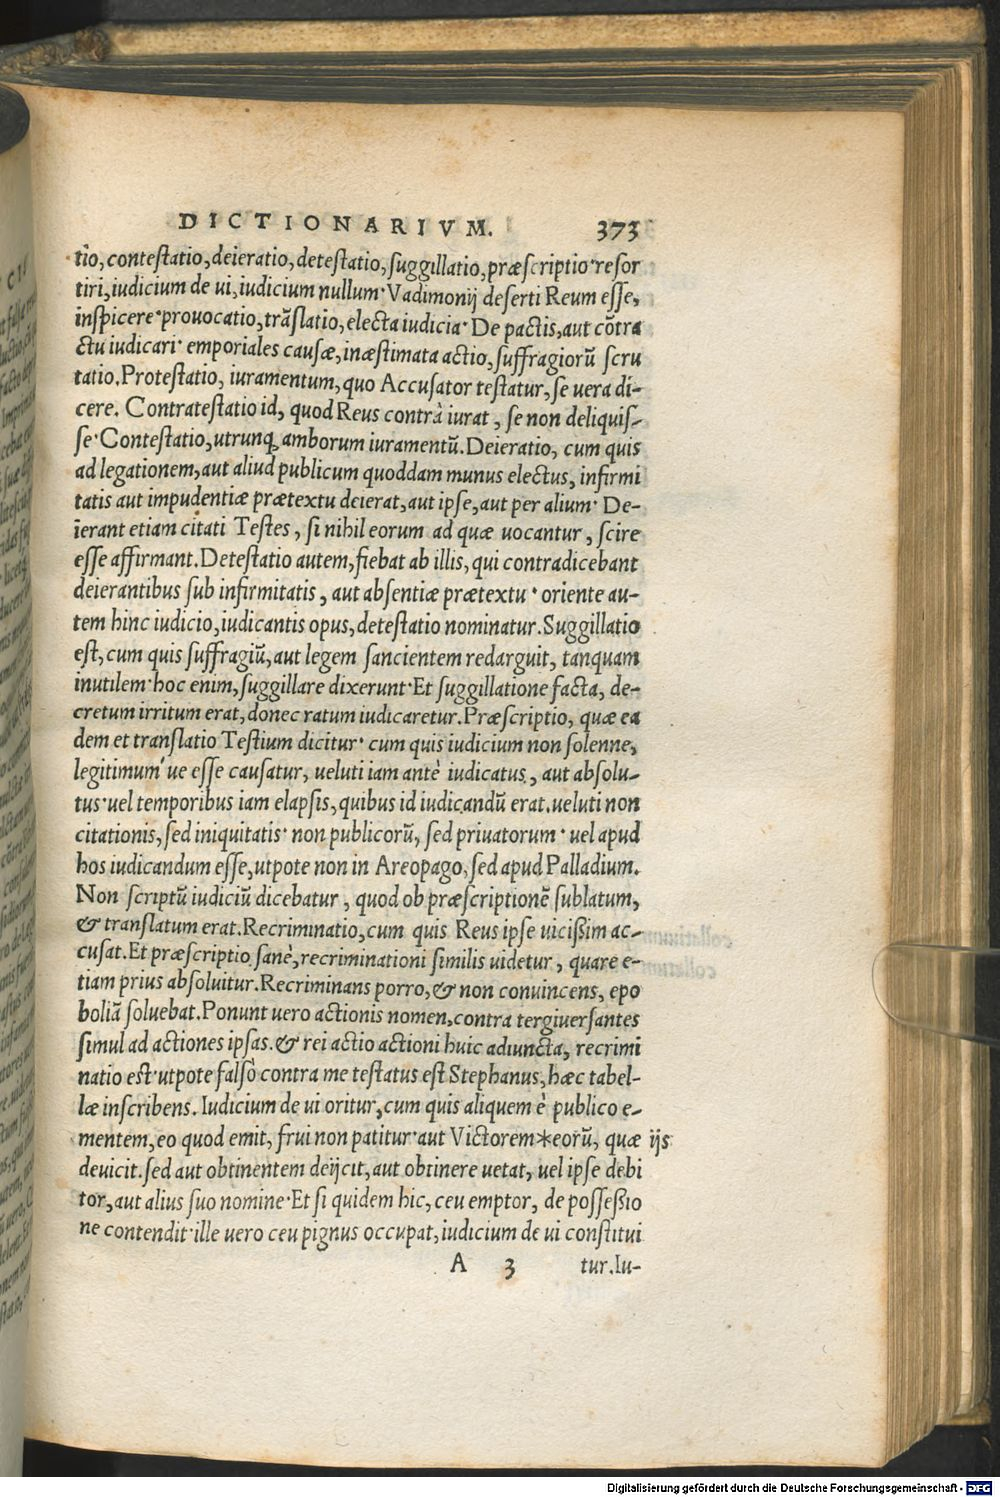 DICTIONARIVM. 373
tio, contestatio, deieratio, detestatio, suggillatio, præscriptio· resor
tiri, iudicium de ui, iudicium nullum· Vadimonij deserti Reum esse,
inspicere· prouocatio, trãslatio, electa iudicia· De pactis, aut cõtra
ctu iudicari· emporiales causæ, inæstimata actio, suffragiorũ scru
tatio. Protestatio, iuramentum, quo Accusator testatur, se uera di-
cere. Contratestatio id, quod Reus contrà iurat, se non deliquis-
se· Contestatio, utrunq; amborum iuramentũ. Deieratio, cum quis
ad legationem, aut aliud publicum quoddam munus electus, infirmi
tatis aut impudentiæ prætextu deierat, aut ipse, aut per alium· De-
ierant etiam citati Testes, si nihil eorum ad quæ uocantur, scire
esse affirmant. Detestatio autem, fiebat ab illis, qui contradicebant
deierantibus sub infirmitatis, aut absentiæ prætextu· oriente au-
tem hinc iudicio, iudicantis opus, detestatio nominatur. Suggillatio
est, cum quis suffragiũ, aut legem sancientem redarguit, tanquam
inutilem· hoc enim, suggillare dixerunt· Et suggillatione facta, de-
cretum irritum erat, donec ratum iudicaretur. Præscriptio, quæ ea
dem et translatio Testium dicitur· cum quis iudicium non solenne,
legitimum'ue esse causatur, ueluti iam antè iudicatus, aut absolu-
tus· uel temporibus iam elapsis, quibus id iudicandũ erat. ueluti non
citationis, sed iniquitatis· non publicorũ, sed priuatorum· uel apud
hos iudicandum esse, utpote non in Areopago, sed apud Palladium.
Non scriptũ iudiciũ dicebatur, quod ob præscriptionẽ sublatum,
& translatum erat. Recriminatio, cum quis Reus ipse uicißim ac-
cusat. Et præscriptio sanè, recriminationi similis uidetur, quare e-
tiam prius absoluitur. Recriminans porro, & non conuincens, epo
boliã soluebat. Ponunt uero actionis nomen, contra tergiuersantes
simul ad actiones ipsas. & rei actio actioni huic adiuncta, recrimi
natio est· utpote falsò contra me testatus est Stephanus, hæc tabel-
læ inscribens. Iudicium de ui oritur, cum quis aliquem è publico e-
mentem, eo quod emit, frui non patitur· aut Victorem*eorũ, quæ ijs
deuicit. sed aut obtinentem deijcit, aut obtinere uetat, uel ipse debi
tor, aut alius suo nomine· Et si quidem hic, ceu emptor, de possessio
ne contendit· ille uero ceu pignus occupat, iudicium de ui constitui
A 3 tur. Iu-
Digitalisierung gefördert durch die Deutsche Forschungsgemeinschaft - DFG